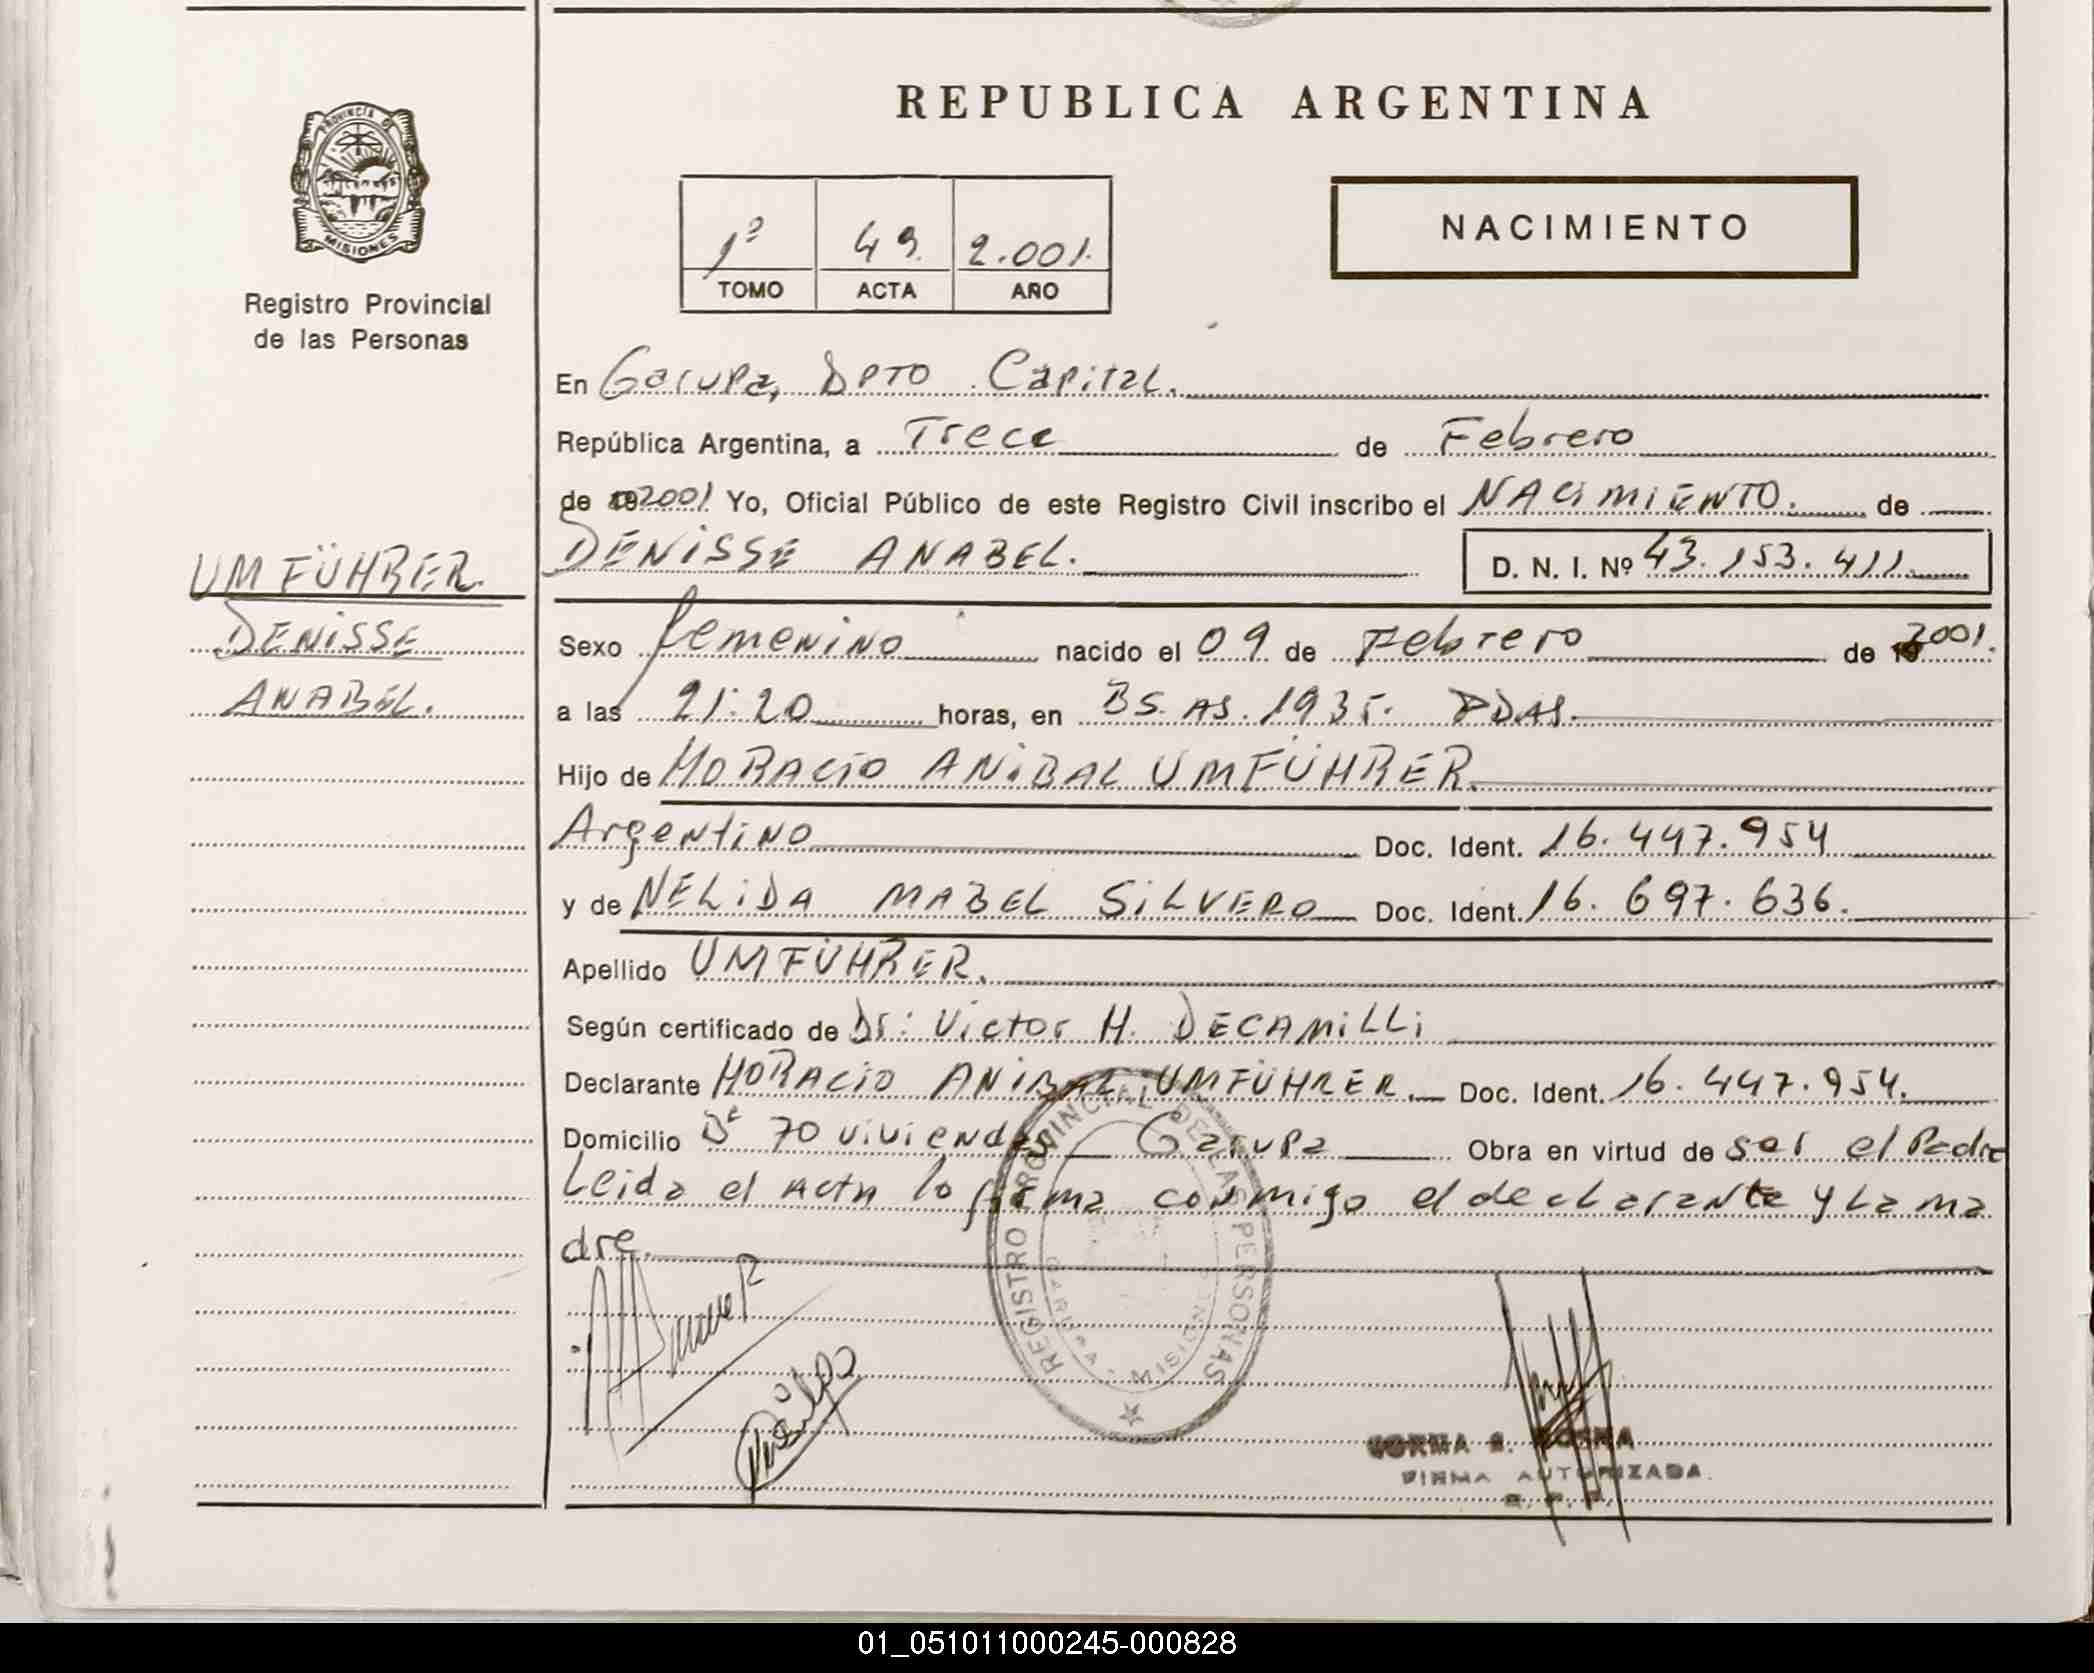 PROVINCIA DE
MISIONES
Registro Provincial
de las Personas
UMFÜHRER.
DENISSE
ANABEL.
REPUBLICA ARGENTINA
1º 49. 2.001.
TOMO ACTA AÑO
NACIMIENTO
En Garupa, DPTO Capital.
República Argentina, a Trece de Febrero
de 2001 Yo, Oficial Público de este Registro Civil inscribo el NACIMIENTO. de
DENISSE ANABEL. D. N. I. Nº 43.153.411.
Sexo femenino nacido el 09 de Febrero de 2001.
a las 21:20 horas, en BS. AS. 1935. PDAS.
Hijo de HORACIO ANIBAL UMFÜHRER.
Argentino Doc. Ident. 16.447.954
y de NELIDA MABEL SILVERO Doc. Ident. 16.697.636.
Apellido UMFÜHRER.
Según certificado de Dr: Victor H. DECAMILLI
Declarante HORACIO ANIBAL UMFÜHRER. Doc. Ident. 16.447.954.
Domicilio Bº 70 viviendas Garupa Obra en virtud de ser el Padre
Leida el Acta lo firma conmigo el declarante y La ma
dre.
REGISTRO PROVINCIAL DE LAS PERSONAS
GARUPA - MISIONES
FIRMA AUTORIZADA
01_051011000245-000828